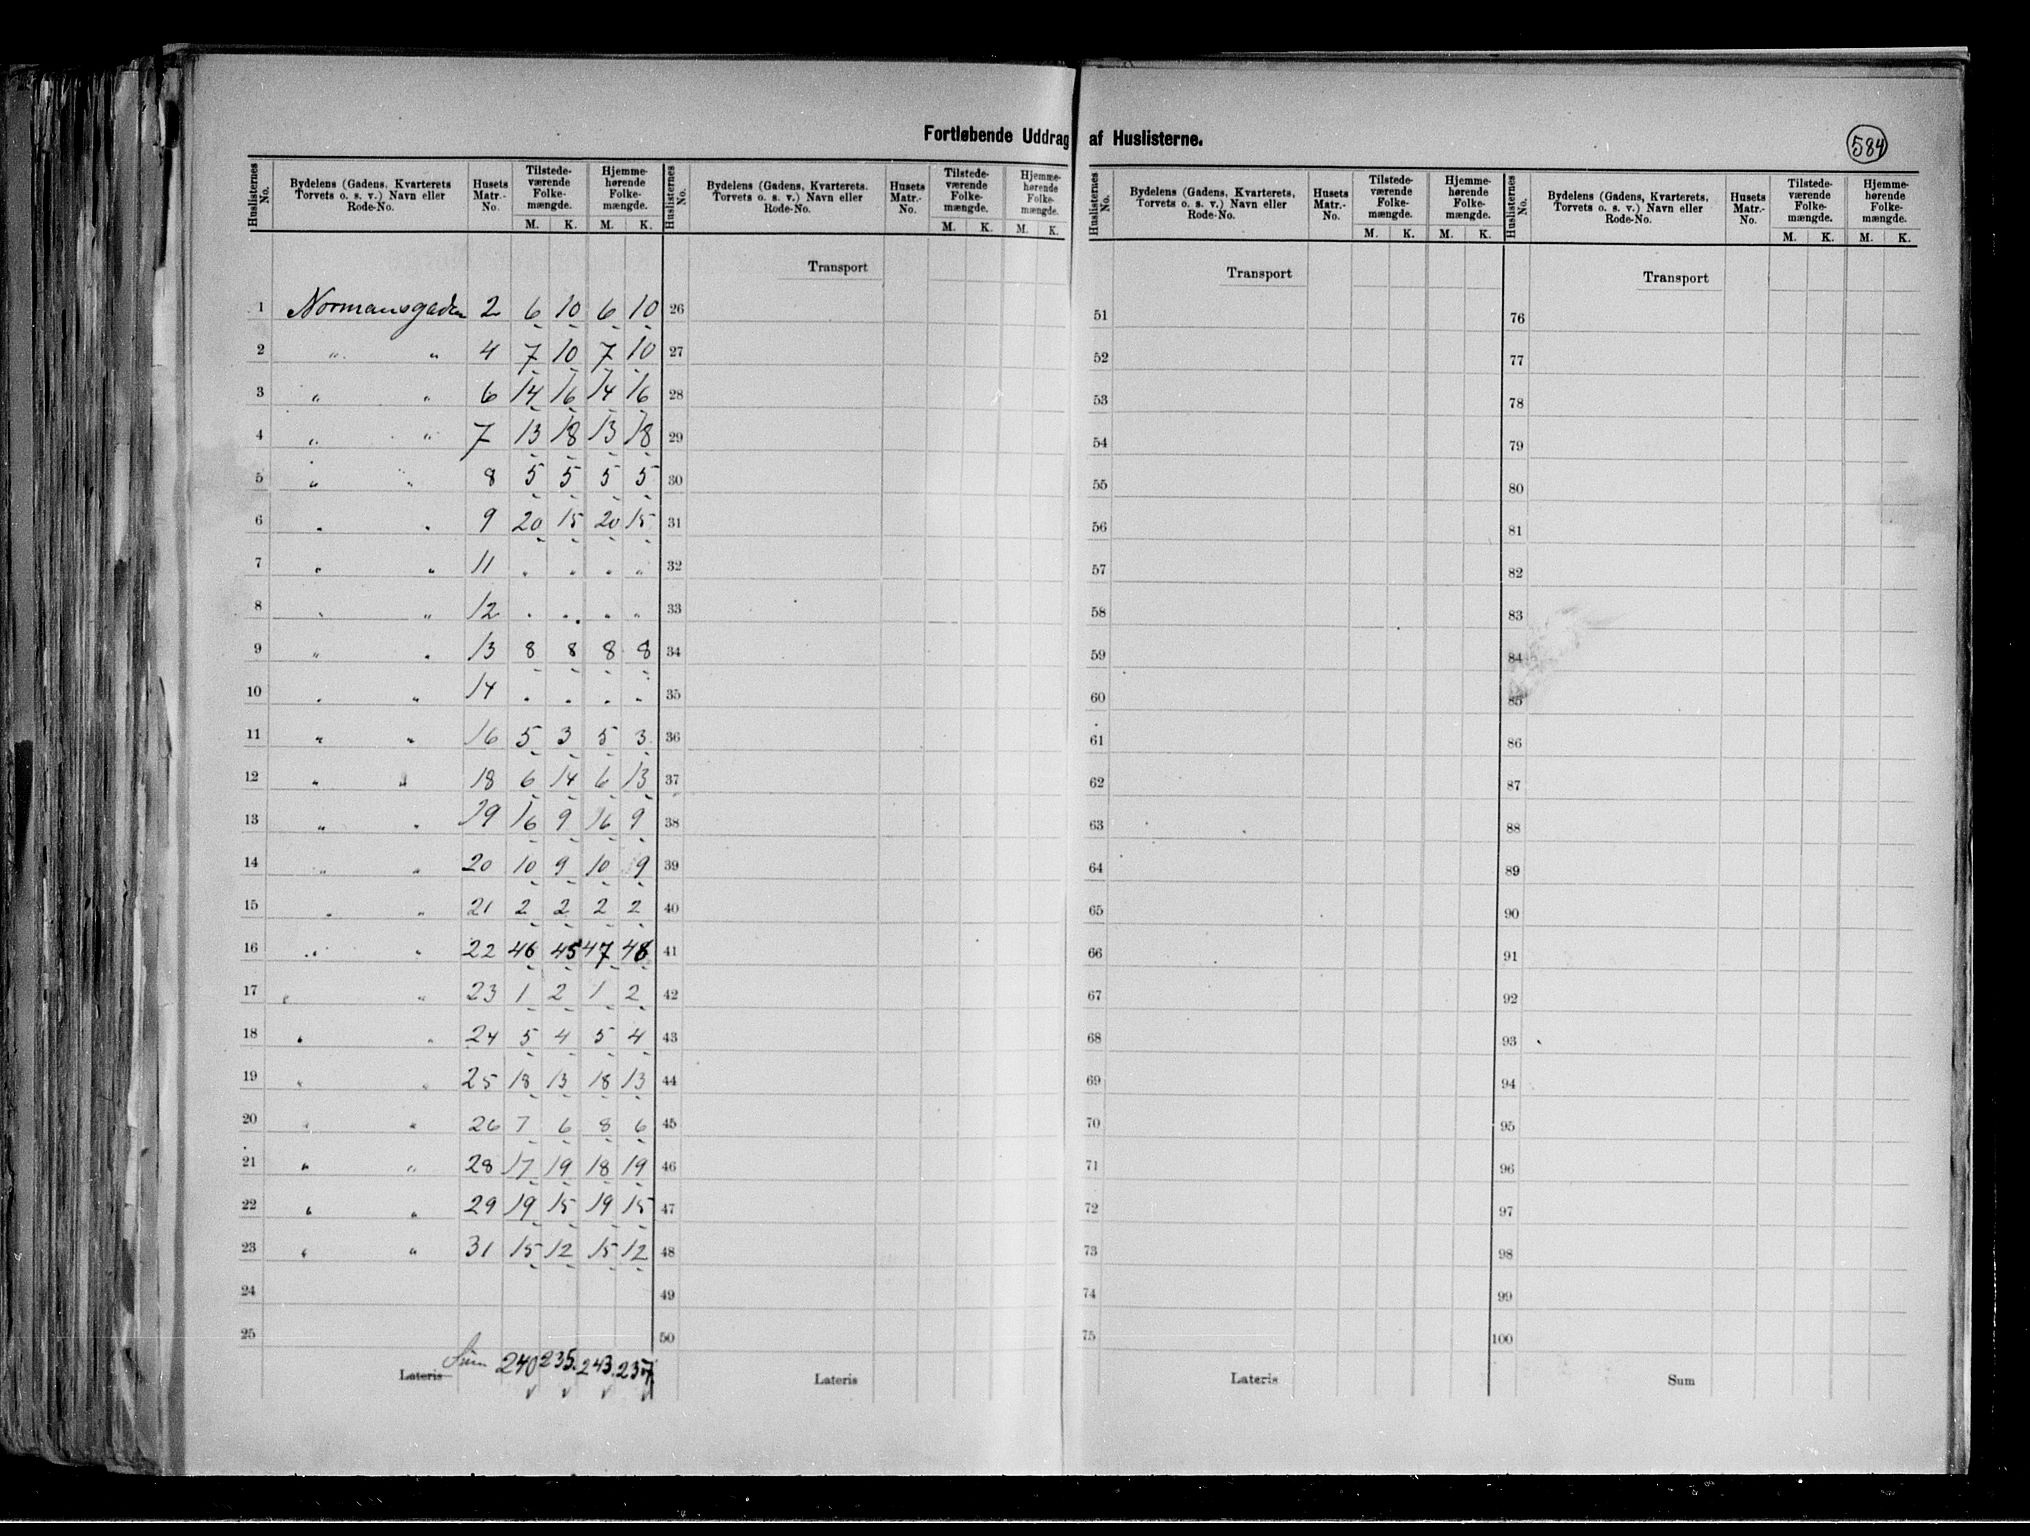 Fortløbende Uddrag af Huslisterne.
584
Huslisternes No. Bydelens (Gadens, Kvarterets Torvets o. s. v.) Navn eller Rode-No. Husets Matr.-No. Tilstede-værende Folke-mængde. M. K. Hjemme-hørende Folke-mængde. M. K.
Huslisternes No. Bydelens (Gadens, Kvarterets. Torvets o. s. v.) Navn eller Rode-No. Husets Matr.-No. Tilstede-værende Folke-mængde. M. K. Hjemme-hørende Folke-mængde. M. K.
Huslisternes No. Bydelens (Gadens, Kvarterets, Torvets o. s. v.) Navn eller Rode-No. Husets Matr.-No. Tilstede-værende Folke-mængde. M. K. Hjemme-hørende Folke-mængde. M. K.
Huslisternes No. Bydelens (Gadens, Kvarterets, Torvets o. s. v.) Navn eller Rode-No. Husets Matr.-No. Tilstede-værende Folke-mængde. M. K. Hjemme-hørende Folke-mængde. M. K.
Transport Transport Transport
1 Normansgaden 2 6 10 6 10 26 51 76
2 " " 4 7 10 7 10 27 52 77
3 " " 6 14 16 14 16 28 53 78
4 " " 7 13 18 13 18 29 54 79
5 " " 8 5 5 5 5 30 55 80
6 " " 9 20 15 20 15 31 56 81
7 " " 11 " " " " 32 57 82
8 " " 12 " " " " 33 58 83
9 " " 13 8 8 8 8 34 59 84
10 " " 14 " " " " 35 60 85
11 " " 16 5 3 5 3 36 61 86
12 " " 18 6 14 6 13 37 62 87
13 " " 19 16 9 16 9 38 63 88
14 " " 20 10 9 10 9 39 64 89
15 " " 21 2 2 2 2 40 65 90
16 " " 22 46 45 47 48 41 66 91
17 " " 23 1 2 1 2 42 67 92
18 " " 24 5 4 5 4 43 68 93
19 " " 25 18 13 18 13 44 69 94
20 " " 26 7 6 8 6 45 70 95
21 " " 28 17 19 18 19 46 71 96
22 " " 29 19 15 19 15 47 72 97
23 " " 31 15 12 15 12 48 73 98
24 49 74 99
25 50 75 100
Lateris Sum 240 235. 243. 237 Lateris Lateris Sum